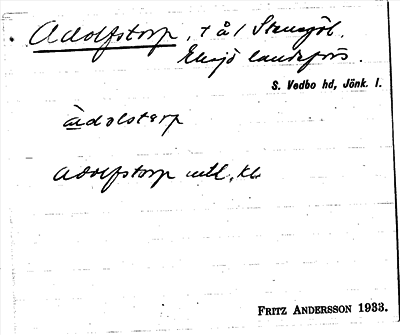 Adolfstorp, t å / Stensjöl.
Eksjö landsförs.
S. Vedbo hd, Jönk. l.
àdolstarp
Adolfstorp mtl, kb
FRITZ ANDERSSON 1933.